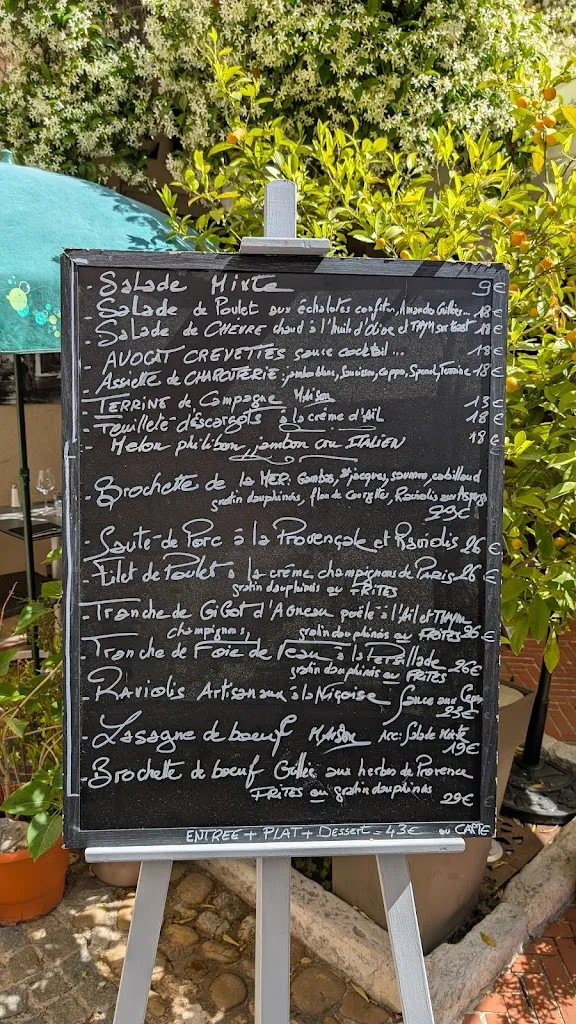 - Salade Mixte 9€
- Salade de Poulet aux échalotes confites, Amandes Grillées... 18€
- Salade de CHEVRE chaud à l'huile d'Olive et THYM sur toast 18€
- AVOCAT CREVETTES sauce cocktail... 18€
- Assiette de CHARCUTERIE: jambon blanc, Saucisson, coppa, Speck, Terrine 18€
- TERRINE de Campagne Maison 13€
- Feuilleté d'escargots à la crème d'Ail 18€
- Melon philibon, jambon cru ITALIEN 18€
- Brochette de la MER: Gambas, St jacques, saumon, cabillaud
gratin dauphinois, flan de Courgette, Raviolis aux Asperg
29€
- Sauté de Porc à la Provençale et Raviolis 26€
- Filet de Poulet à la crème champignons de PARIS 26€
gratin dauphinois ou FRITES
- Tranche de GIGOT d'Agneau poêlé à l'Ail et THYM
champignons, gratin dauphinois ou FRITES 26€
- Tranche de Foie de Veau à la Persillade 26€
gratin dauphinois ou FRITES
- Raviolis Artisanaux à la Niçoise Sauce aux Cepes
23€
- Lasagne de boeuf Maison Acc: Salade Verte
19€
- Brochette de boeuf Grillée aux herbes de Provence
FRITES ou gratin dauphinois
29€
ENTREE + PLAT + Dessert = 43€ ou CARTE